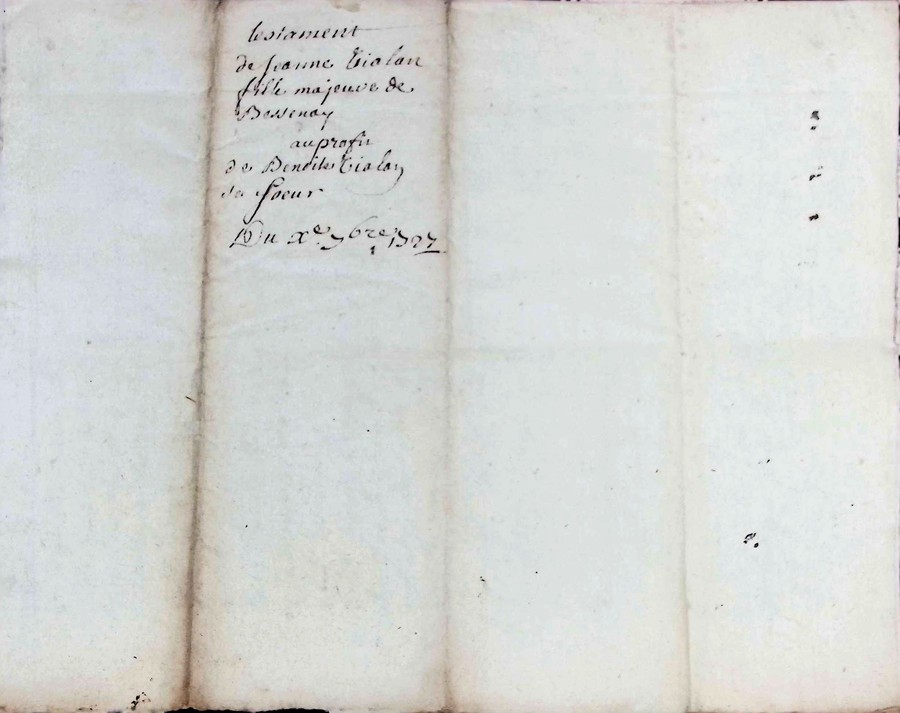 testament
de Jeanne Tialan
fille majeure de
Bessenay
au profit
de Benoite Tialan
sa soeur
Du Xe. 7bre 1727